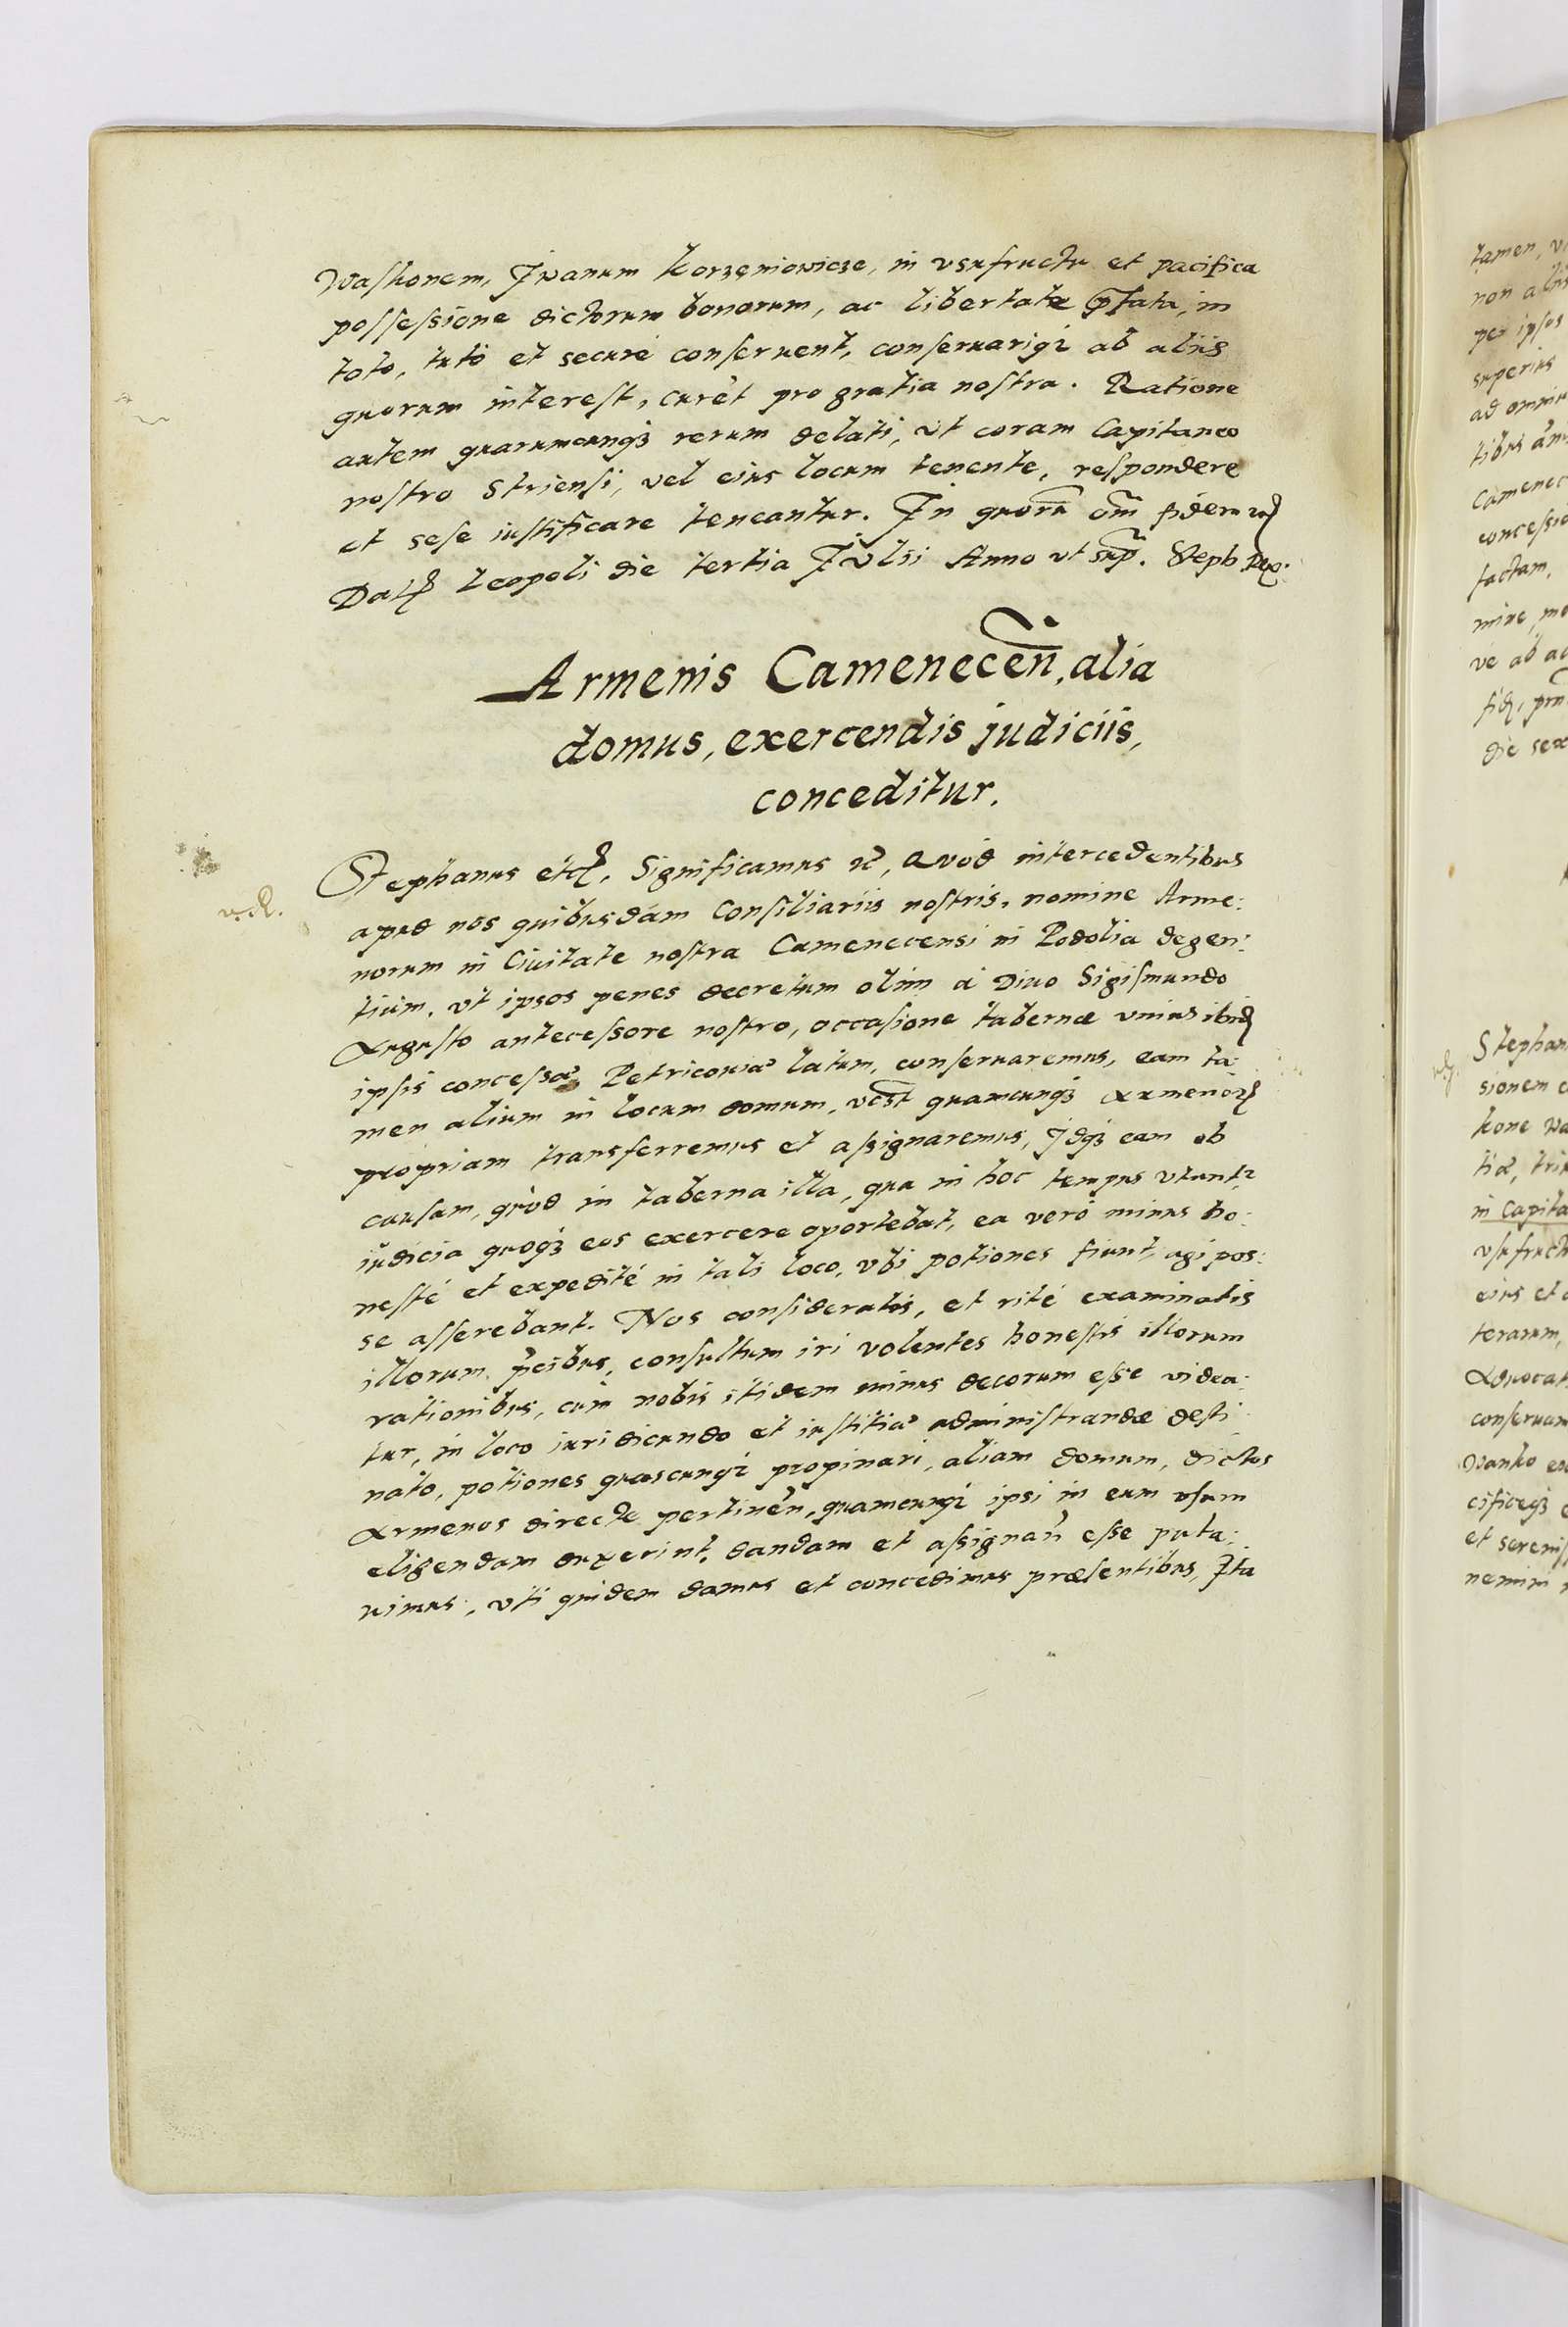 Waskonem, Iwanum Korzeniowicze, in vsufructu et pacifica
possessione dictorum bonorum, ac libertate p̃fata, in
toto, tutò et securè conseruent, conseruariq̃ ab aliis
quorum interest, curẽt pro gratia nostra. Ratione
autem quarumcunqꝫ rerum delati, vt coram Capitaneo
nostro Striensi, vel eius locum tenente, respondere
et sese iustificare teneantur. In quorũ om̃ fidem
Dat̃ Leopoli die tertia Iulii Anno vt sup̃. Steph Rex.
Armenis Camenecen̄, alia
domus, exercendis judiciis,
conceditur.
Stephanus etc̃. Significamus ꝛc̃, Quòd intercedentibus
apud nos quibusdam Consiliariis nostris, nomine Arme:
norum in Ciuitate nostra Camenecensi in Podolia degen:
tium, vt ipsos penes decretum olim à Diuo Sigismundo
Augusto antecessore nostro, occasione tabernæ vnius ibid̃
ipsis concessæ Petricouiæ latum, conseruaremus, eam ta:
men alium in locum domum, vcst̃ quamcunqꝫ Armenoꝝ
propriam transferremus et assignaremus, Idqꝫ eam ob
causam, quòd in taberna illa, qua in hoc tempus vtunt̃
iudicia quoqꝫ eos exercere oportebat, ea verò minus ho:
nestè et expeditè in tali loco, vbi potiones fiunt, agi pos:
se asserebant. Nos consideratis, et ritè examinatis
illorum p̃cibus, consultum iri volentes honestis illorum
rationibus, cum nobis itidem minus decorum esse videa:
tur, in loco iuri dicundo et iustitiæ administrandæ desti:
nato, potiones quascunq̃ propinari, aliam domum, dictos
Armenos directe pertineñ, quamcunq̃ ipsi in eum vsum
eligendam duxerint, dandam et assignañ esse puta:
uimus, vti quidem damus et concedimus præsentibus, Ita
tamen,
non aliis
per ipsos
superius
ad omnium
tibus
Camenec
concessio
factam,
ve ab
die sex
Stephan
sionem
kone
in Capita
vsufruct
eius et
terarum,
Aduocat
conseruam
Wanko
cificeqꝫ
et sereniss
nemini